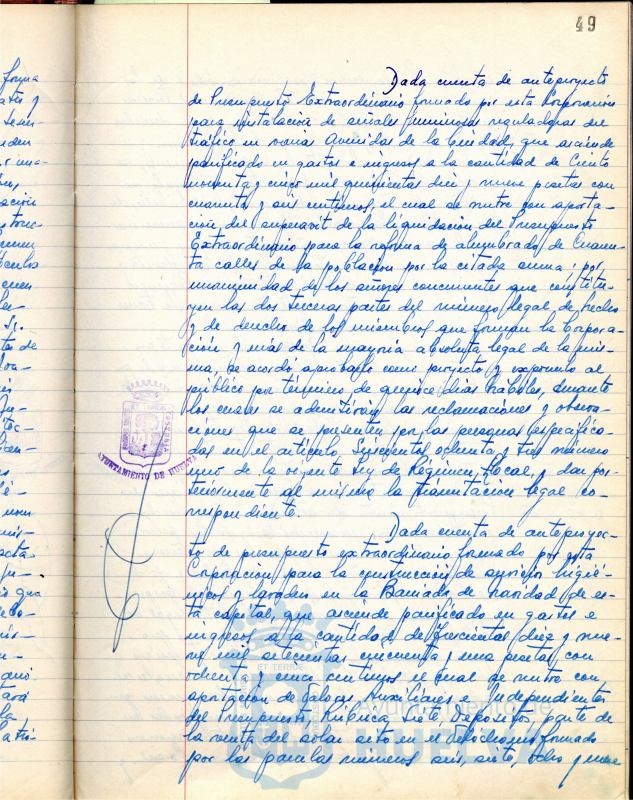 49
Dada cuenta de anteproyecto
de Presupuesto Extraordinario formado por esta Corporación
para instalación de señales luminosas reguladoras del
tráfico en varias Avenidas de la Ciudad, que asciende
panificado en gastos e ingresos a la cantidad de Ciento
noventa y cinco mil quinientas diez y nueve pesetas con
cuarenta y seis centimos, el cual se nutre con aporta-
ción del superavit de la liquidación del Presupuesto
Extraordinario para la reforma de alumbrado de Cuaren-
ta calles de la población por la citada suma; por
unanimidad de los señores concurrentes que constitu-
yen las dos terceras partes del número legal de hecho
y de derecho de los miembros que forman la Corpora-
ción y más de la mayoria absoluta legal de la mis-
ma, se acordó aprobarlo como proyecto y exponerlo al
público por término de quince dias habiles, durante
los cuales se admitirán las reclamaciones y observa-
ciones que se presenten por las personas especifica-
das en el artículo Seiscientos ochenta y tres número
uno de la vigente Ley de Régimen Local, y dar pos-
teriormente al mismo la tramitación legal co-
rrespondiente.
Dada cuenta de anteproyec-
to de presupuesto extraordinario formado por esta
Corporación para la construcción de servicios higié-
nicos y lavaderos en la Barriada de Navidad de es-
ta capital, que asciende panificado en gastos e
ingresos a la cantidad de Trescientas diez y nue-
ve mil setecientas cincuenta y una pesetas con
ochenta y cinco centimos el cual se nutre con
aportación de Valores Auxiliares e Independientes
del Presupuesto, Rúbrica Siete, Depositos, parte de
la venta del solar sito en el Velodromo formado
por las parcelas números seis, siete, ocho y nueve
AYUNTAMIENTO DE HUELVA
ET TERRÆ
Ayuntamiento de
HUELVA